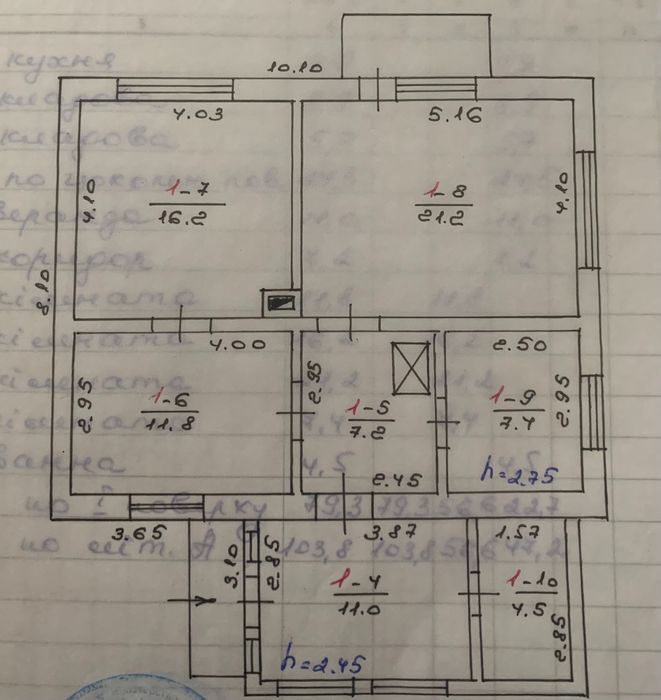 10.10
4.03
5.16
4.10
1-7
16.2
1-8
21.2
4.10
8.10
4.00
2.50
2.95
1-6
11.8
2.95
1-5
7.2
1-9
7.4
2.95
2.45
h=2.75
3.65
3.87
1.57
3.10
2.85
1-4
11.0
1-10
4.5
2.85
h=2.45
кухня
кладова
кладова
веранда
коридор
кімната
кімната
кімната
кімната
ванна
по I поверху 79,3 79,3 56,6 22,7
по літ. А 103,8 103,8 56,6 47,2